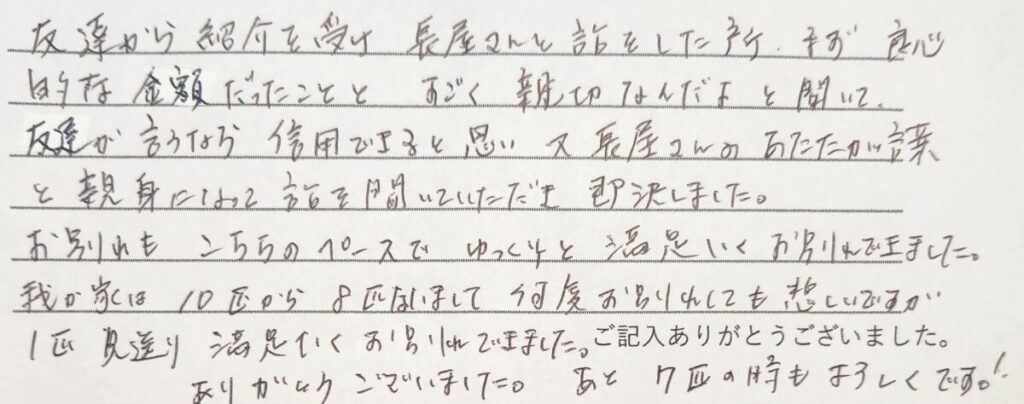 友達から紹介を受け 長屋さんと話をした所、まず 良心
的な 金額だったことと すごく 親切なんだよ と聞いて、
友達が言うなら 信用できると思い 又 長屋さんの あたたかい言葉
と親身になって 話を聞いていただき 即決しました。
お別れも こちらのペースで ゆっくりと 満足いく お別れできました。
我が家は 10匹から 8匹ないまして 何度お別れしても 悲しいですが
1匹 見送り 満足いく お別れできました。ご記入ありがとうございました。
ありがとうございました。 あと 7匹の時も よろしくです。!